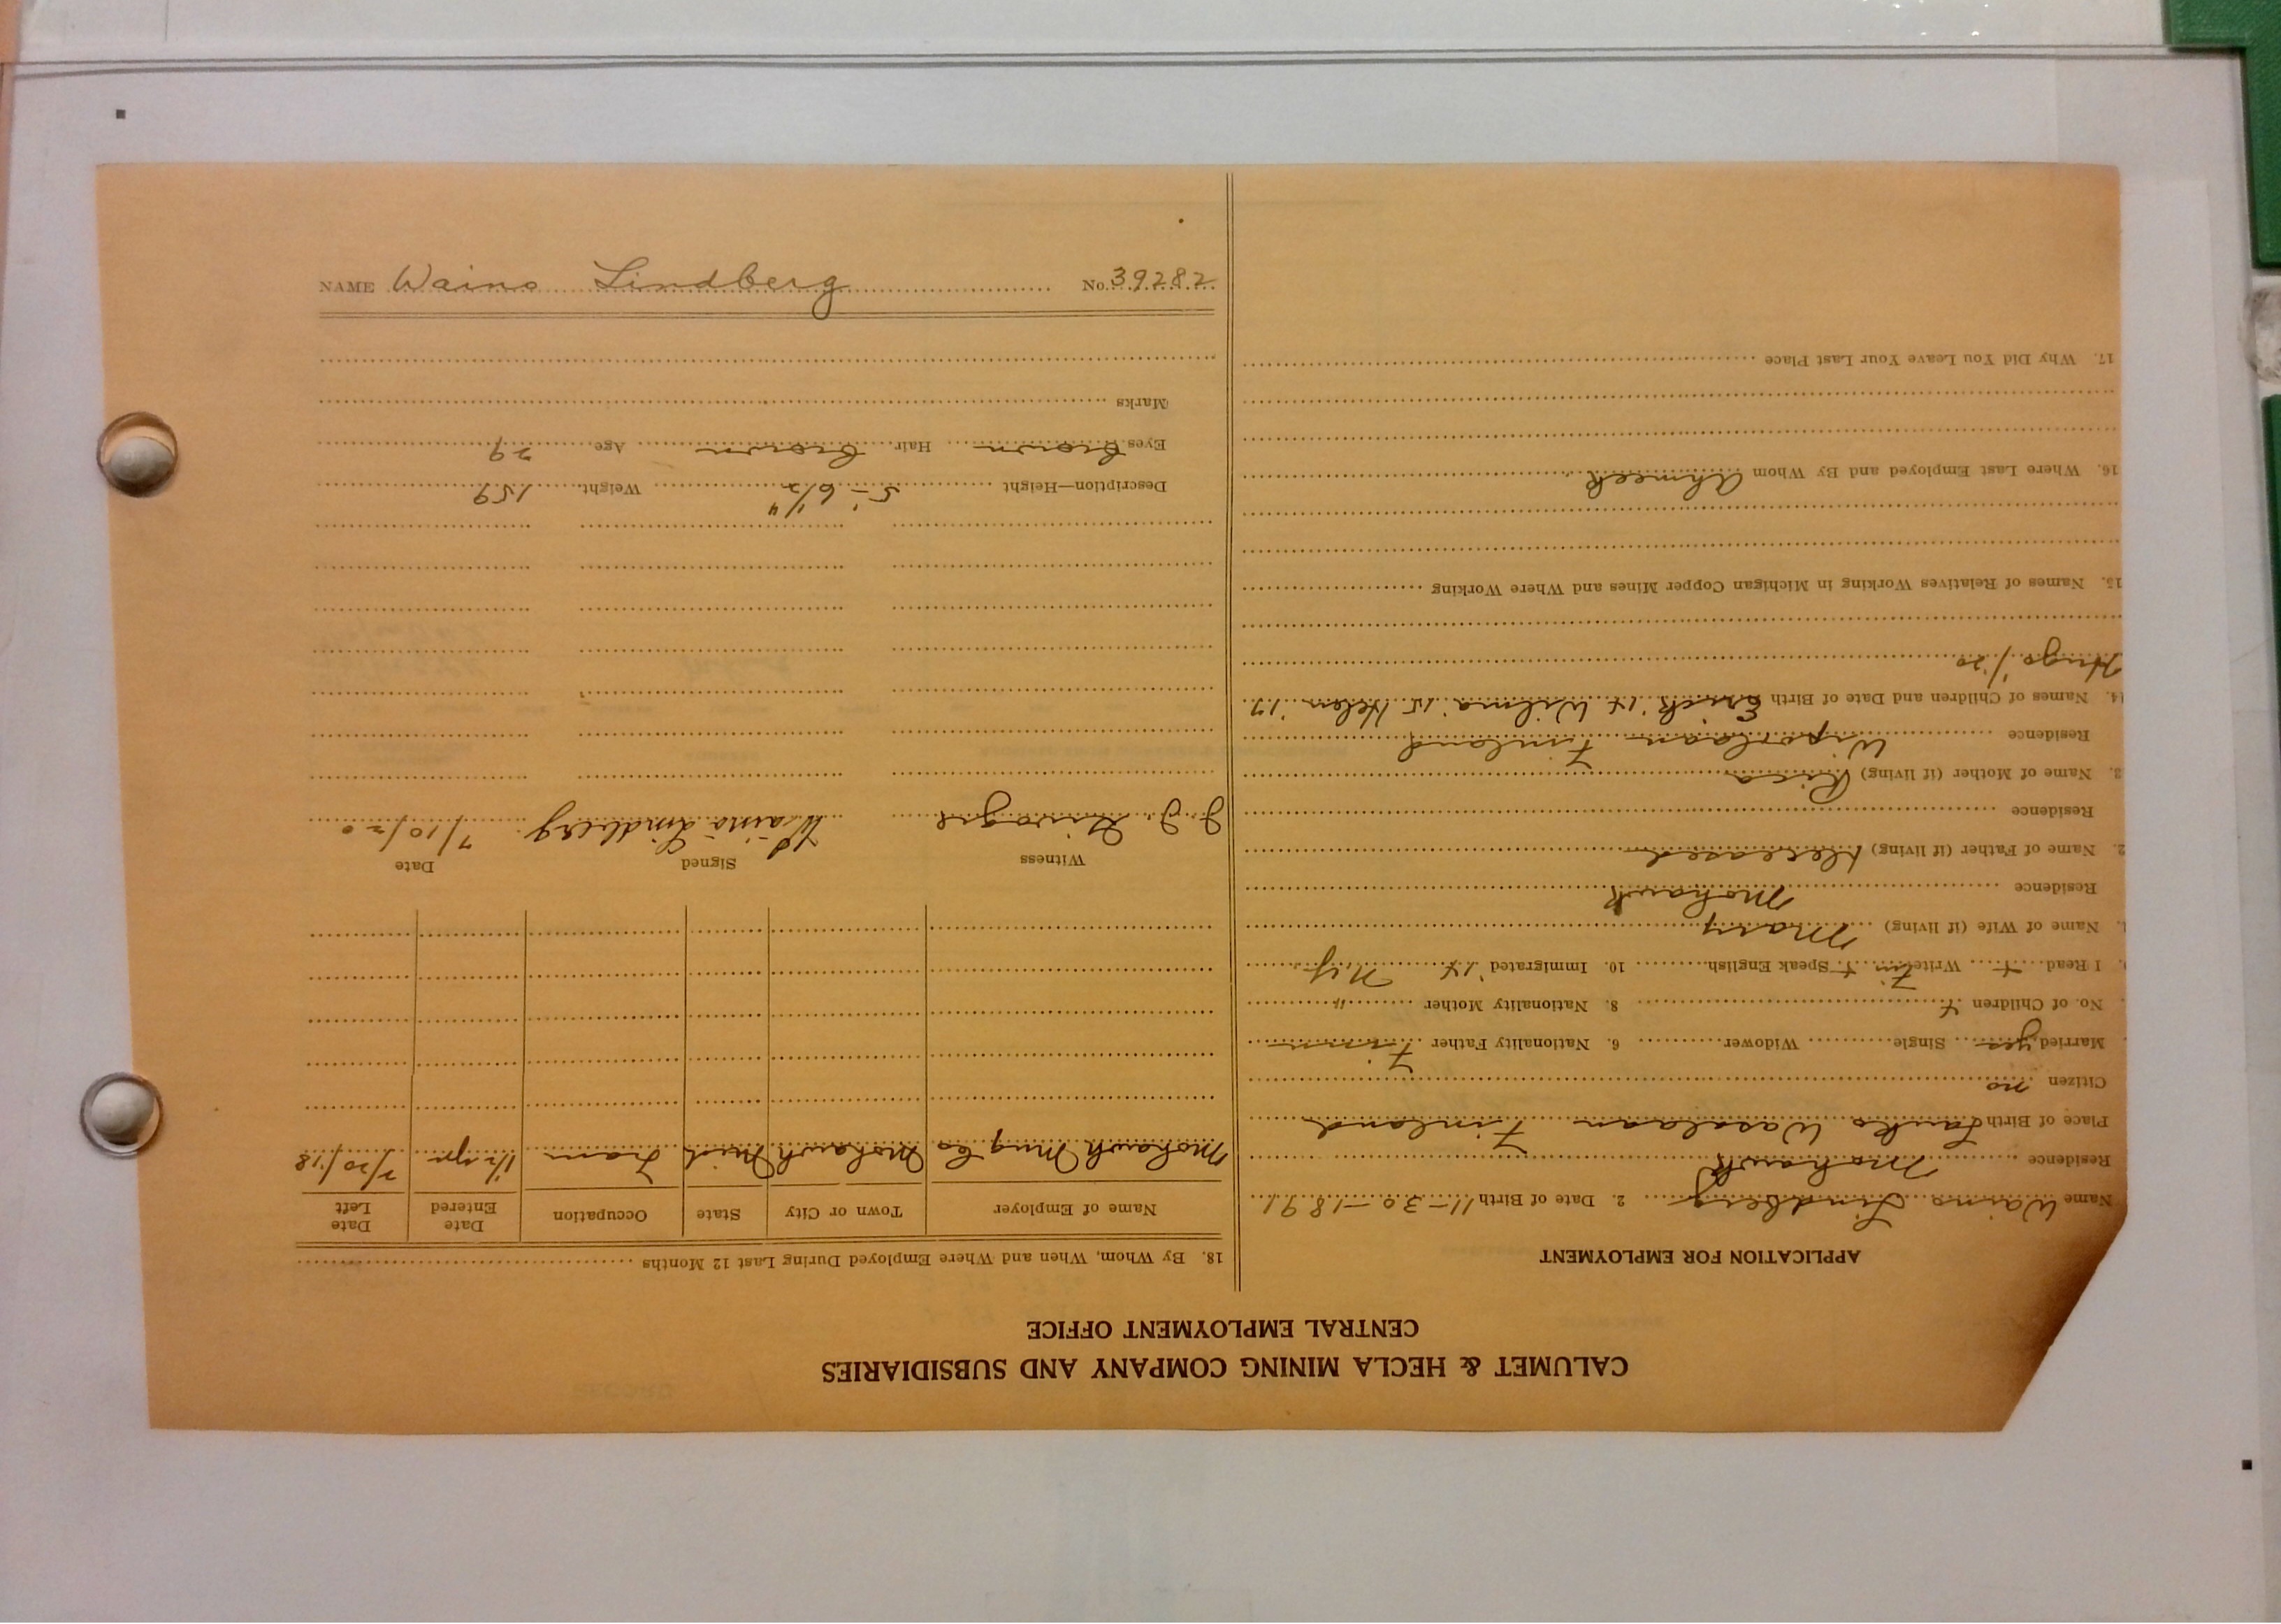 CALUMET & HECLA MINING COMPANY AND SUBSIDIARIES
CENTRAL EMPLOYMENT OFFICE
APPLICATION FOR EMPLOYMENT
Name Waino Lindberg 2. Date of Birth 11-30-1891
Residence Mohawk
Place of Birth Wasalaan Finland
Citizen no
Married yes Single Widower 6. Nationality Father Finn
No. of Children 4 8. Nationality Mother "
I Read + Write Finn + Speak English 10. Immigrated '14 N.Y.
Name of Wife (if living) Mary
Residence Mohawk
2. Name of Father (if living) Deceased
Residence
3. Name of Mother (if living)
Residence Finland
14. Names of Children and Date of Birth Erick '14 Wilma '15 Helen '17.
Hugo 1/20
15. Names of Relatives Working in Michigan Copper Mines and Where Working
16. Where Last Employed and By Whom Ahmeek
17. Why Did You Leave Your Last Place
18. By Whom, When and Where Employed During Last 12 Months
Name of Employer Town or City State Occupation Date Entered Date Left
Mohawk Mng Co Mohawk Mich Tram 1 1/2 yr 7/20/18
Witness Signed Date
Waino Lindberg 7/10/20
Description—Height 5'-6 1/2" 1/4 Weight 159
Eyes brown Hair brown Age 29
Marks
NAME Waino Lindberg No. 39282